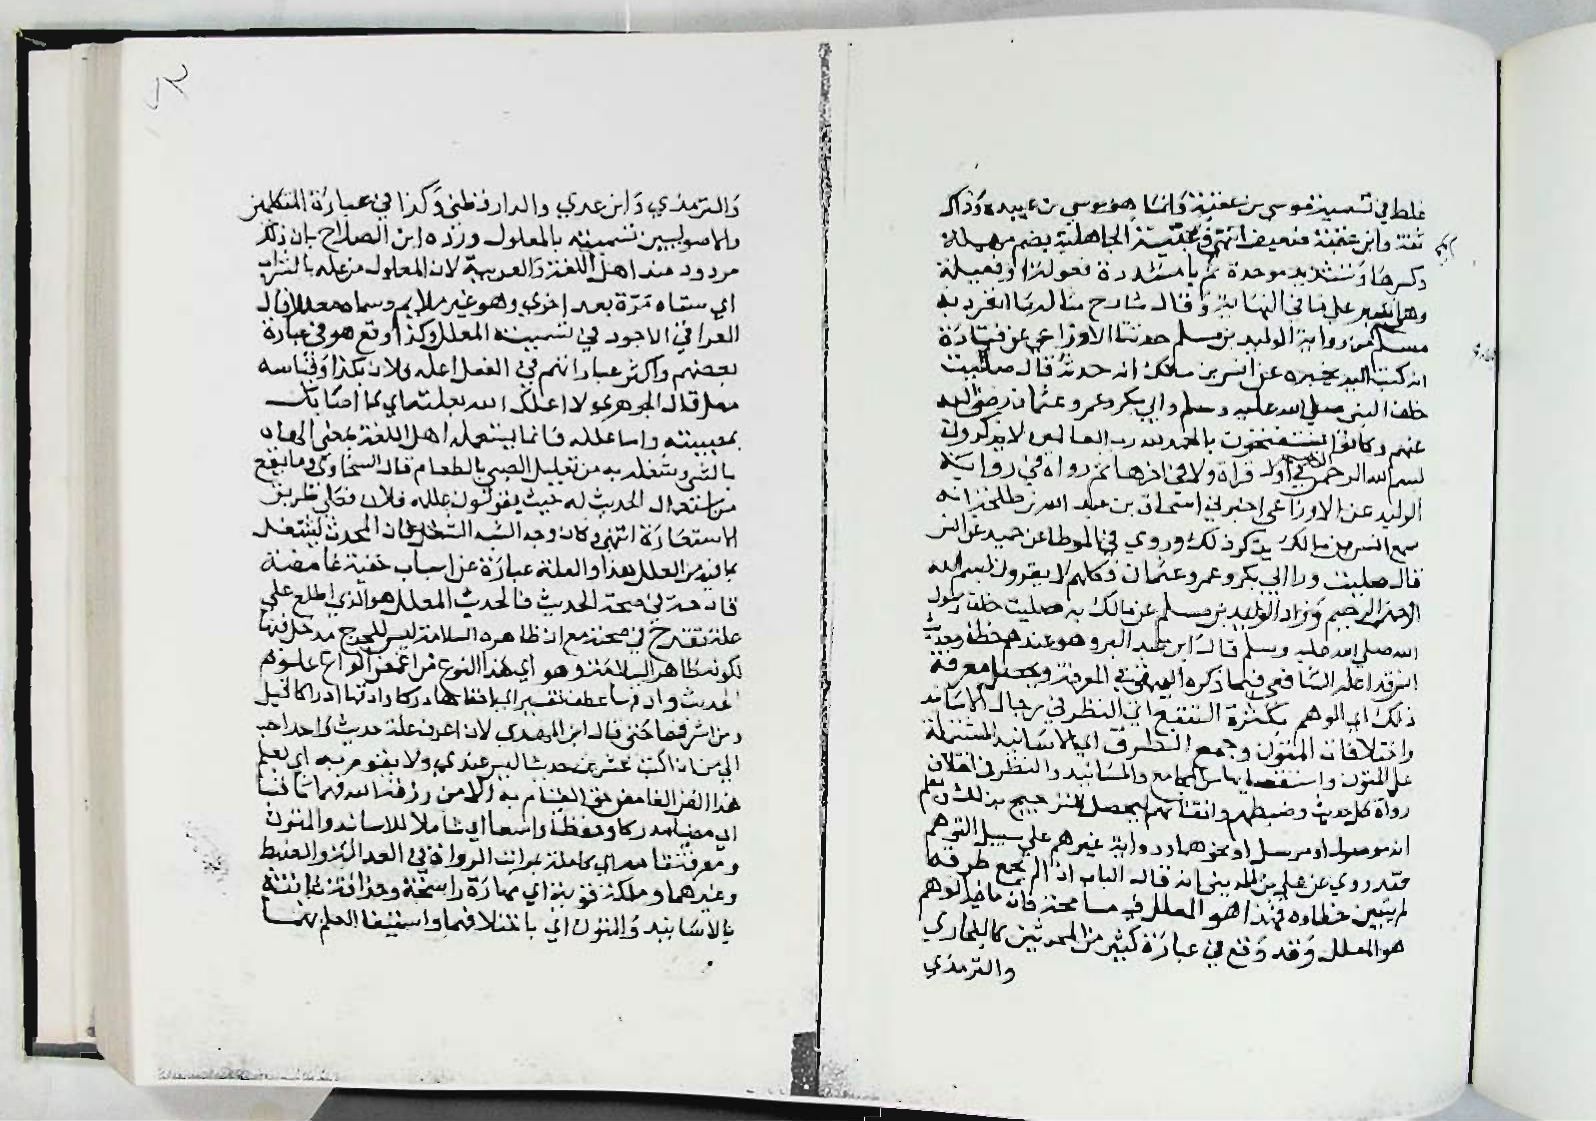 غلط في تسميته موسى بن عقبة وانما هو موسى بن عبيدة وذاك
ثقة وابن عقبة ضعيف انتهى عبية الجاهلية بضم مهملة
وكسرها وتشديد موحدة ثم يا مشددة فعولة او فعيلة
على ما في النهاية وقال شارح مثاله ما انفرد به
مسلم من رواية الوليد بن مسلم حدثنا الاوزاعي عن قتادة
انه كتب اليه يخبره عن انس بن مالك انه حدثه قال صليت
خلف النبي صلى الله عليه وسلم وابي بكر وعمر وعثمان رضي الله
عنهم وكانوا يستفتحون بالحمد لله رب العالمين لا يذكرون
بسم الله الرحمن الرحيم في اول قراة ولا في اخرها ثم رواه في رواية
الوليد عن الاوزاعي اخبرني اسحاق بن عبد الله بن طلحة انه
سمع انس بن مالك يذكر ذلك وروي في الموطا عن حميد عن انس
قال صليت ورا ابي بكر وعمر وعثمان فكلهم لا يقرون بسم الله
الرحمن الرحيم وزاد الوليد بن مسلم عن مالك به صليت خلف رسول
الله صلى الله عليه وسلم قال ابن عبد البر وهو عندهم خطا وحديث
انس قد اعله الشافعي فيما ذكره البيهقي في المعرفة ويحصل معرفة
ذلك اي الوهم بكثرة التتبع اي النظر في رجال الاسانيد
واختلافات المتون وجمع الطرق اي الاسانيد المشتملة
على المتون واستقصايها من الجوامع والمسانيد والنظر في اختلاف
رواة كل حديث وضبطهم واتقانهم ليحصل الترجيح بذلك ويعلم
انه موصول او مرسل او نحوهما ورواية غيرهم على سبيل التوهم
فقد روي عن علي بن المديني انه قال الباب اذا لم يجمع طرقه
لم يتبين خطاوه فهذا هو المعلل
هو المعلل وقد وقع في عبارة كثير من المحدثين كالبخاري
والترمذي
والترمذي وابن عدي والدارقطني وكذا في عبارة المتكلمين
والاصوليين تسميته بالمعلول ورده ابن الصلاح بان ذلك
مردود عند اهل اللغة والعربية لان المعلول من عله بالشراب
اي سقاه مرة بعد اخرى وهو غير ملايم وسماه معللا قال
العراقي الاجود في تسميته المعل وكذا وقع هو في عبارة
بعضهم واكثر عباراتهم في الفعل اعله فلان بكذا وقياسه
معل قال الجوهري لا اعلك الله بعلة اي لا اصابك
بمصيبته واما علله فانما يستعمله اهل اللغة بمعنى الهاه
بالشي وشغله به من تعليل الصبي بالطعام قال السخاوي وما يقع
من استعمال الحديث له حيث يقولون علله فلان فعلى طريق
الاستعارة انتهى وكان وجه الشبه الشغل فان المحدث يشتغل
بما فيه من العلل هذا والعلة عبارة عن اسباب خفية غامضة
قادحة في صحة الحديث فالحديث المعلل هو الذي اطلع على
علة تقدح في صحته مع ان ظاهره السلامة ليس للجرح مدخل فيها
لكونه ظاهر السلامة وهو اي هذا النوع من اغمض انواع علوم
الحديث وادقها عطف تفسير
ومن اشرفها حتى قال ابن المهدي لان اعرف علة حديث احب
الي من ان اكتب عشرين حديثا ليس عندي ولا يقوم به اي بعلم
هذا الفن الغامض حق القيام به الا من رزقه الله فهما ثاقبا
اي وحفظا واسعا اي شاملا للاسانيد والمتون
ومعرفة تامة اي كاملة بمراتب الرواة في العدالة والضبط
وغيرهما وملكة قوية اي مهارة راسخة
بالاسانيد والمتون اي باختلافهما واستيفا العلم بهما